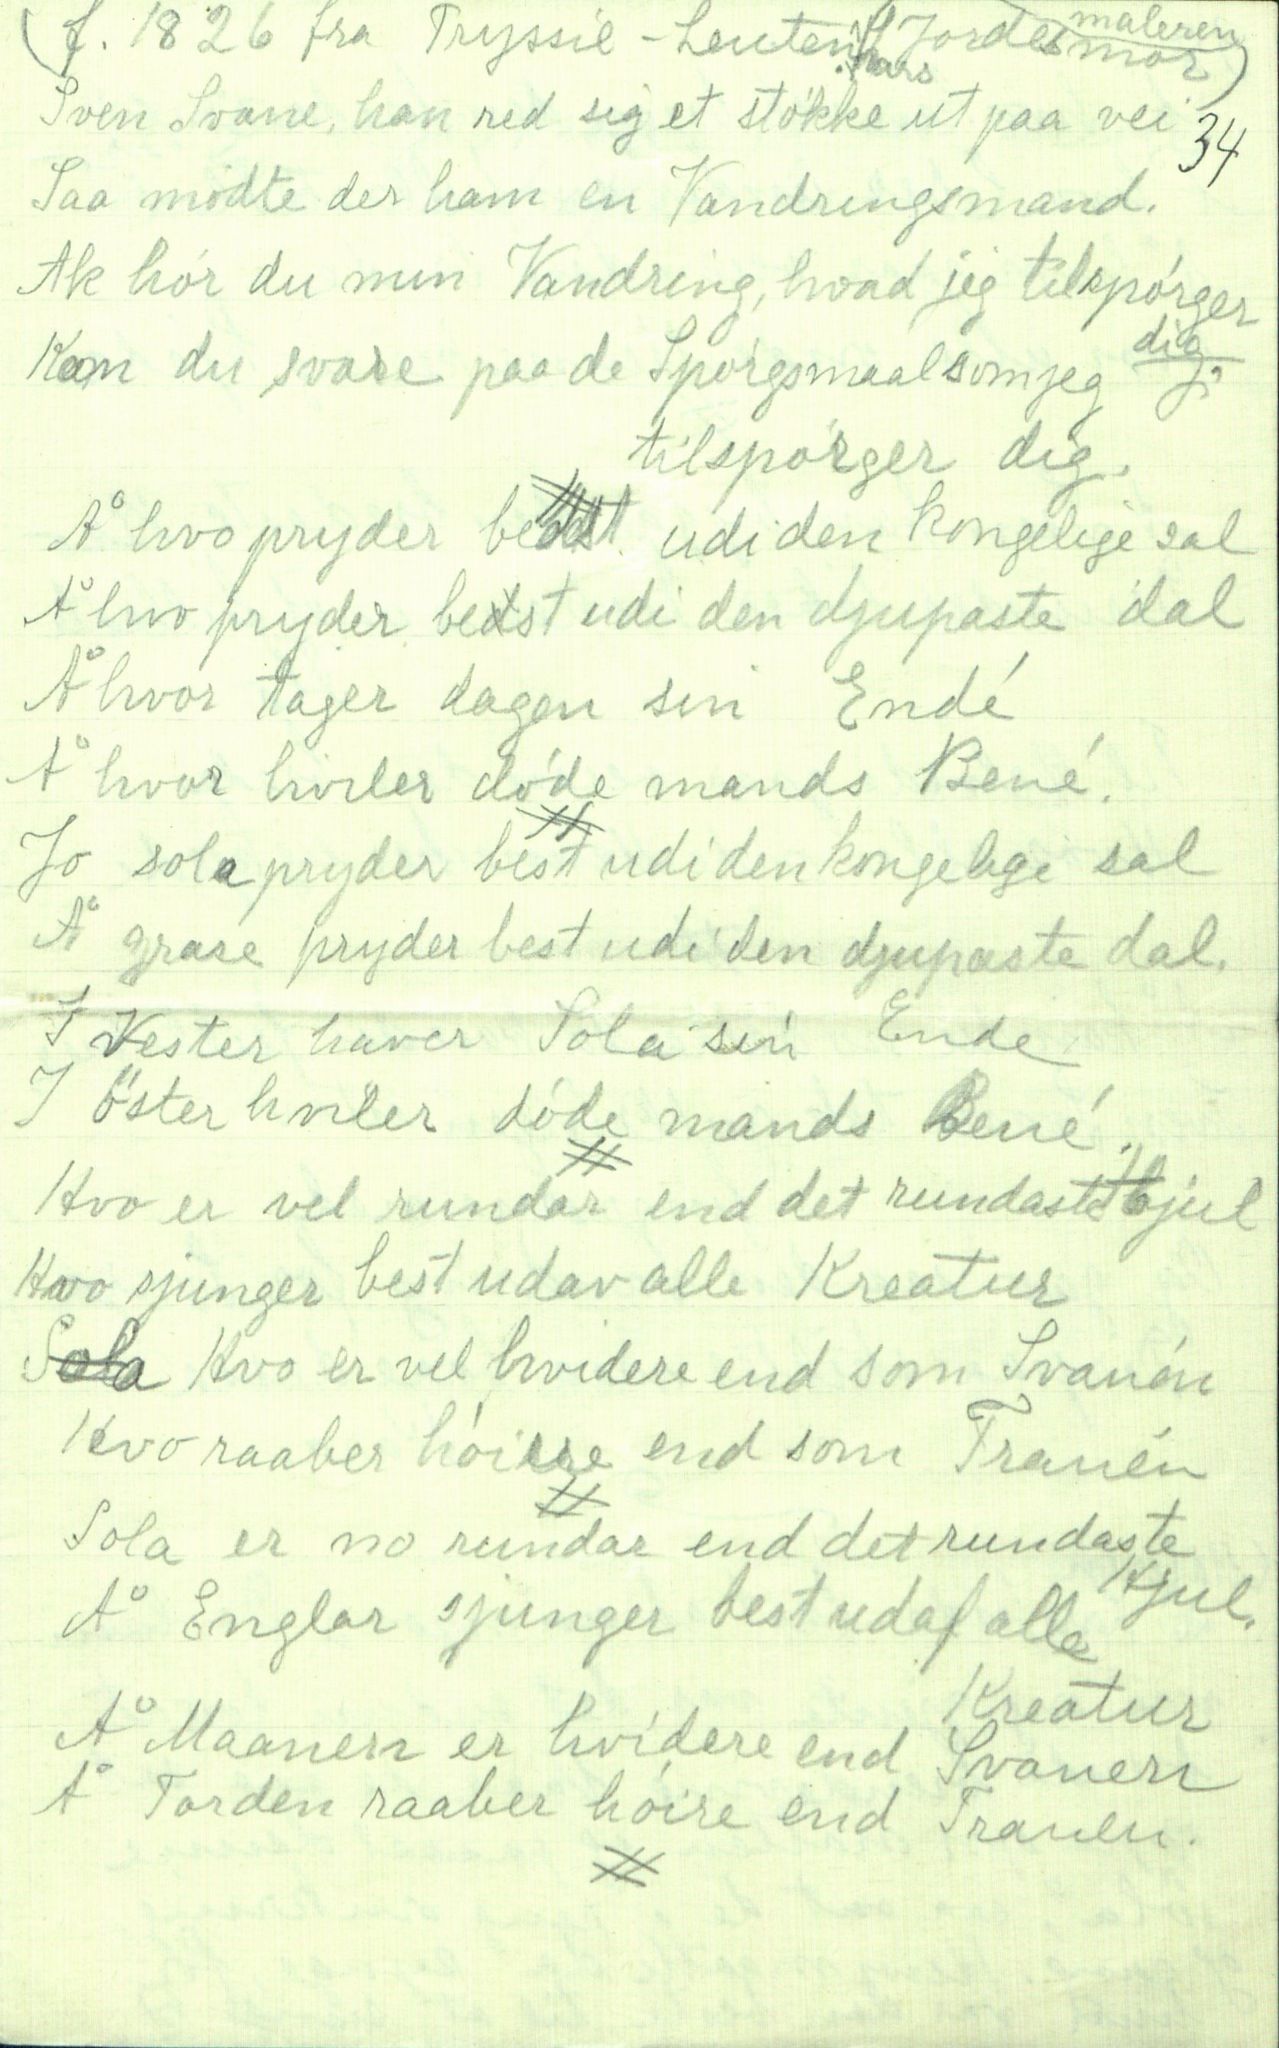 (f. 1826 fra Tryssil - Leuten Hans Jordet maleren mor)
34
Sven Svane, han red sig et støkke ut paa vei
Saa mødte der ham en Vandringsmand.
Ak hør du min Vandring, hvad jeg tilspørger dig
Kan du svare paa de Spørgsmaal som jeg
tilspørger dig.
Å hvo pryder bedst udi den kongelige sal
Å hvo pryder bedst udi den djupaste dal
Å hvor tager dagen sin Endé
Å hvor hviler døde mands Bené.
Jo sola pryder best udi den kongelige sal
Å grase pryder best udi den djupaste dal.
I Vester haver Sola sin Ende
I öster hviler døde mands Bené.
Hvo er vel rundar end det rundaste Hjul
Hvo sjunger best udav alle Kreatur
Sola Hvo er vel hvidere end som Svanén
Hvo raaber høiere end som Tranén
Sola er no rundar end det rundaste
Hjul.
Å Englar sjunger best udaf alle
Kreatur
Å Maanen er hvidere end Svanen
Å Torden raaber høire end Tranen.